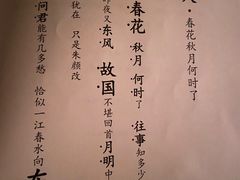 春花秋月何时了
·春花 秋月 何时了·往事知多少
夜又东风·故国不堪回首·月明中
犹在 只是朱颜改
·问君能有几多愁 恰似一江春水向